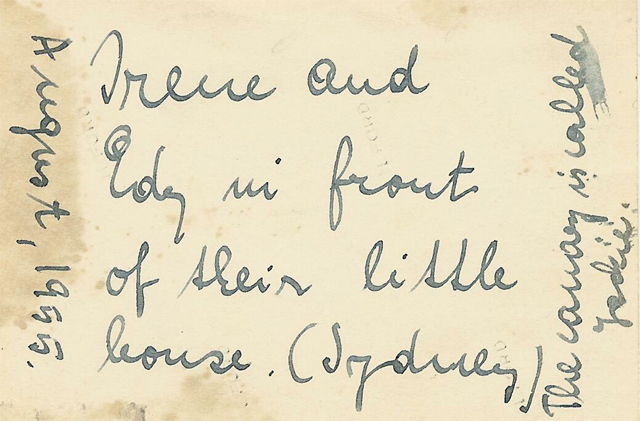 Irene and
Edy in front
of their little
house. (Sydney)
August, 1955.
The canary is called